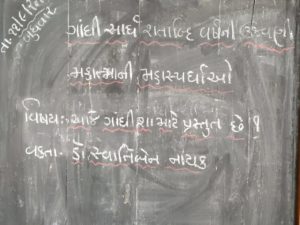 ગાંધી સાર્ધ શતાબ્દિ વર્ષની ઉજવણી
મહાત્માની મહાસ્પર્ધાઓ
વિષય:- આજે ગાંધી શા માટે પ્રસ્તુત છે ?
વક્તા- ડૉ. સ્વાતિબેન નાયક
બુધવાર